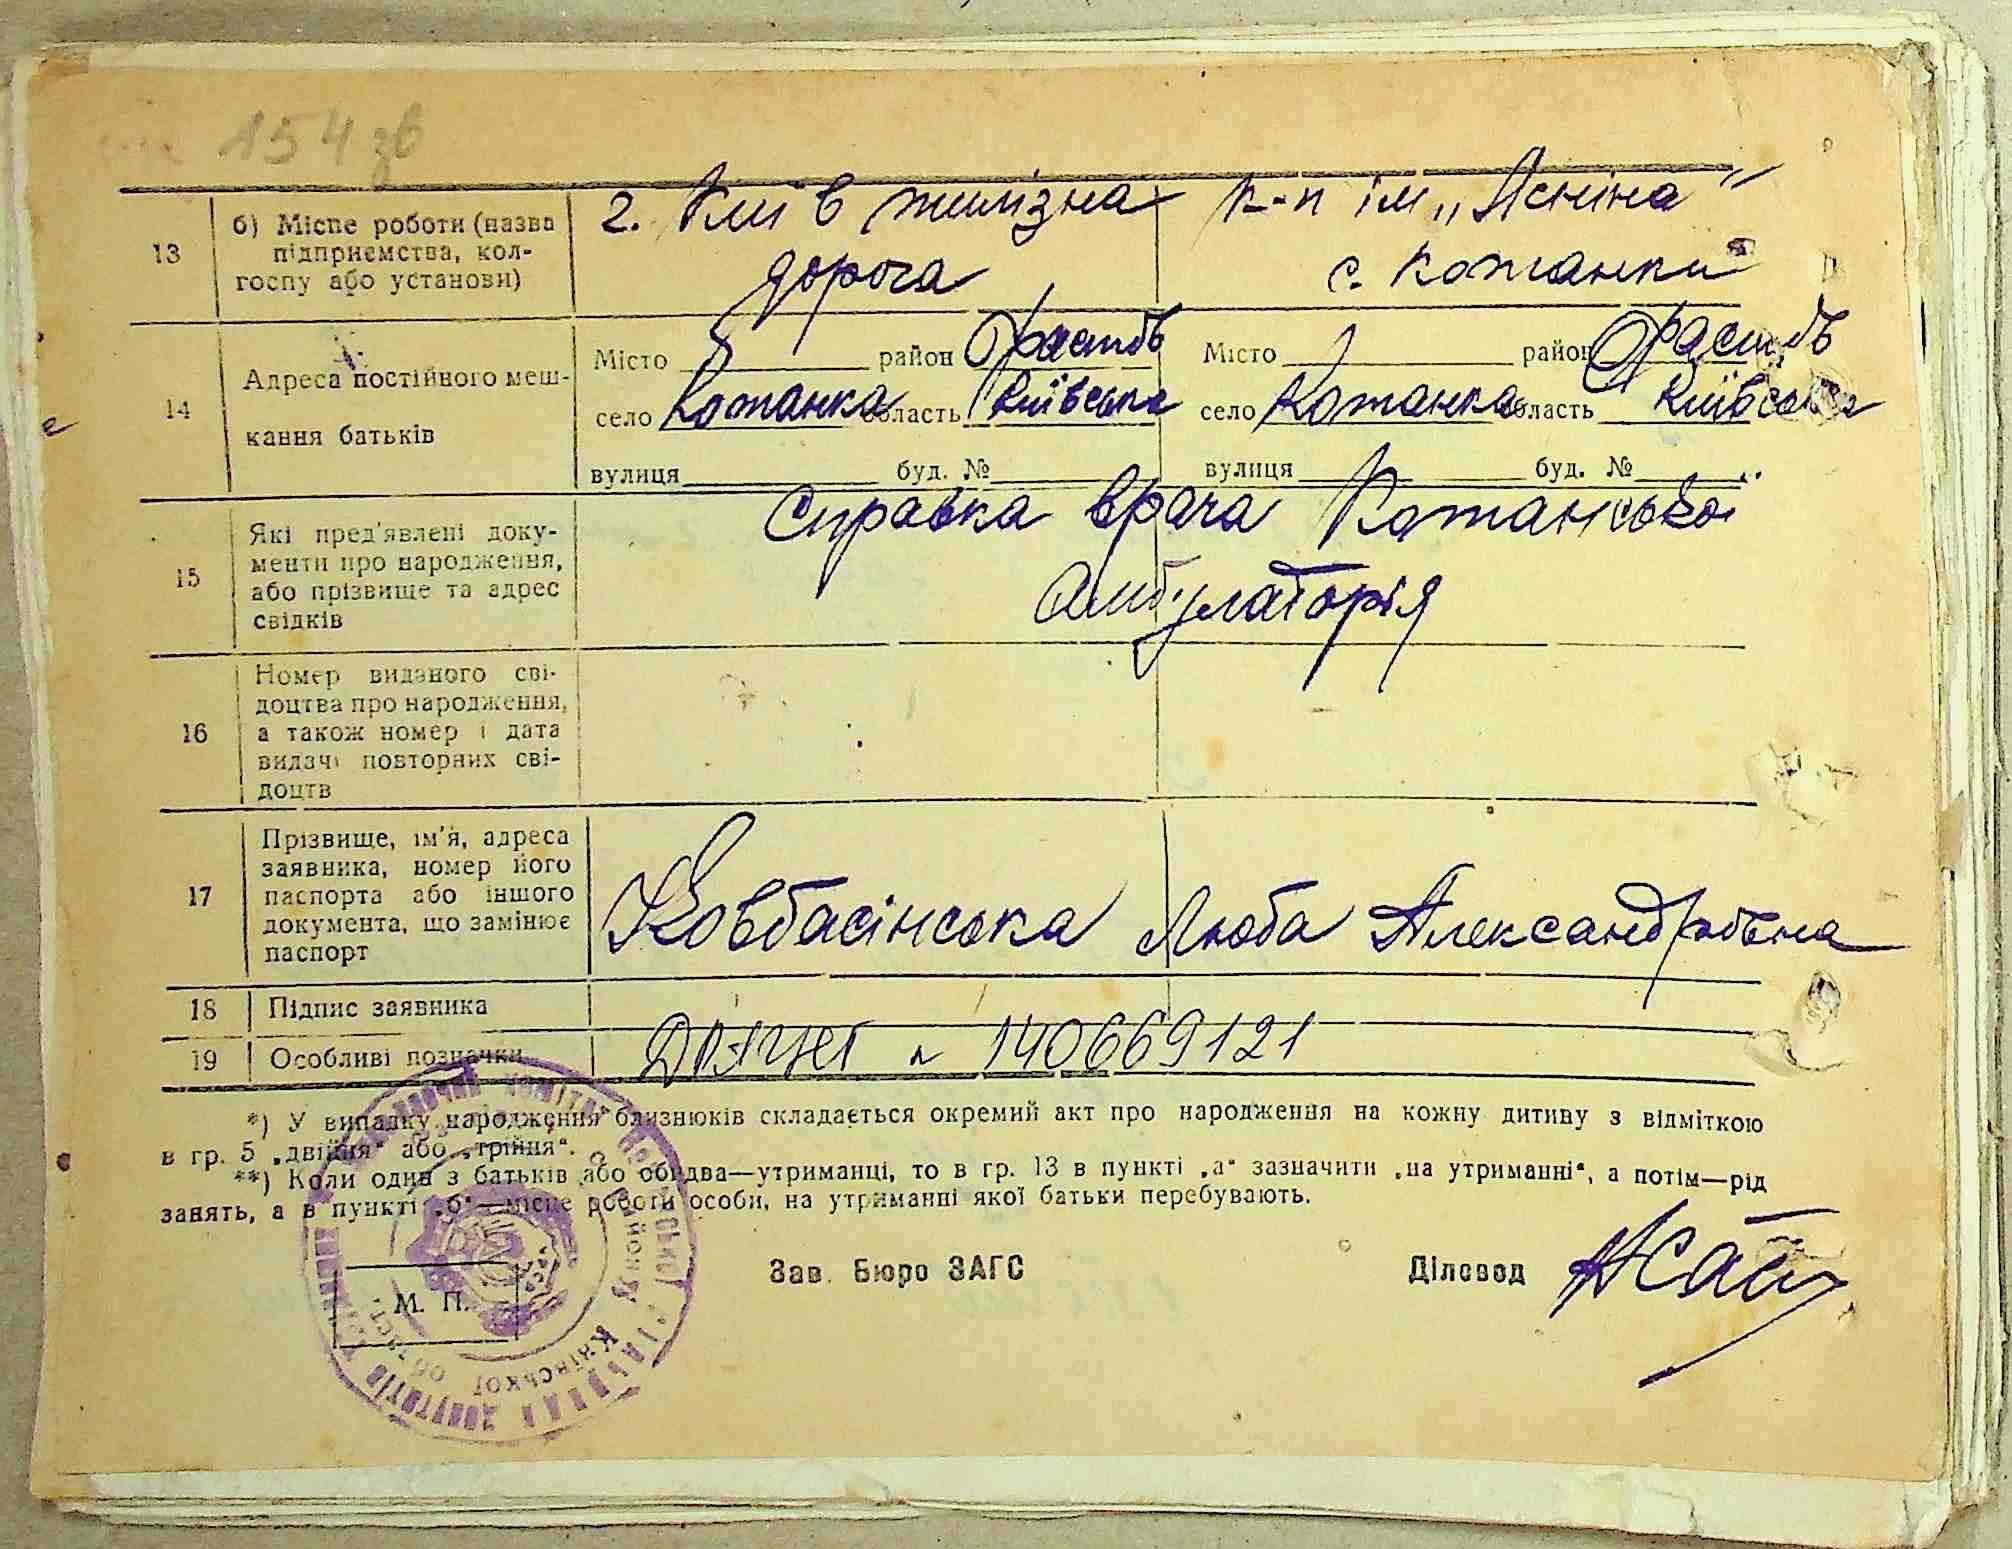 154 зв
13
б) Місце роботи (назва
підприємства, кол-
госпу або установи)
г. Київ жилізна
дорога
к-п ім „Лєніна"
с. Кожанки
14
Адреса постійного меш-
кання батьків
Місто район Фастів
село Кожанка область Київська
вулиця буд. №
Місто район Фастів
село Кожанка область Київська
вулиця буд. №
15
Які пред'явлені доку-
менти про народження,
або прізвище та адрес
свідків
Справка врача Кожанської
Амбулаторія
16
Номер виданого сві-
доцтва про народження,
а також номер і дата
видачі повторних сві-
доцтв
17
Прізвище, ім'я, адреса
заявника, номер його
паспорта або іншого
документа, що замінює
паспорт
Ковбасінська Люба Александровна
18 Підпис заявника
19 Особливі позначки
140669121
*) У випадку народження близнюків складається окремий акт про народження на кожну дитину з відміткою
в гр. 5 „двійня" або „трійня".
**) Коли один з батьків або обидва—утриманці, то в гр. 13 в пункті „а" зазначити „на утриманні", а потім—рід
занять, а в пункті „б"—місце роботи особи, на утриманні якої батьки перебувають.
Зав. Бюро ЗАГС Діловод
М. П.
Київської
депутатів